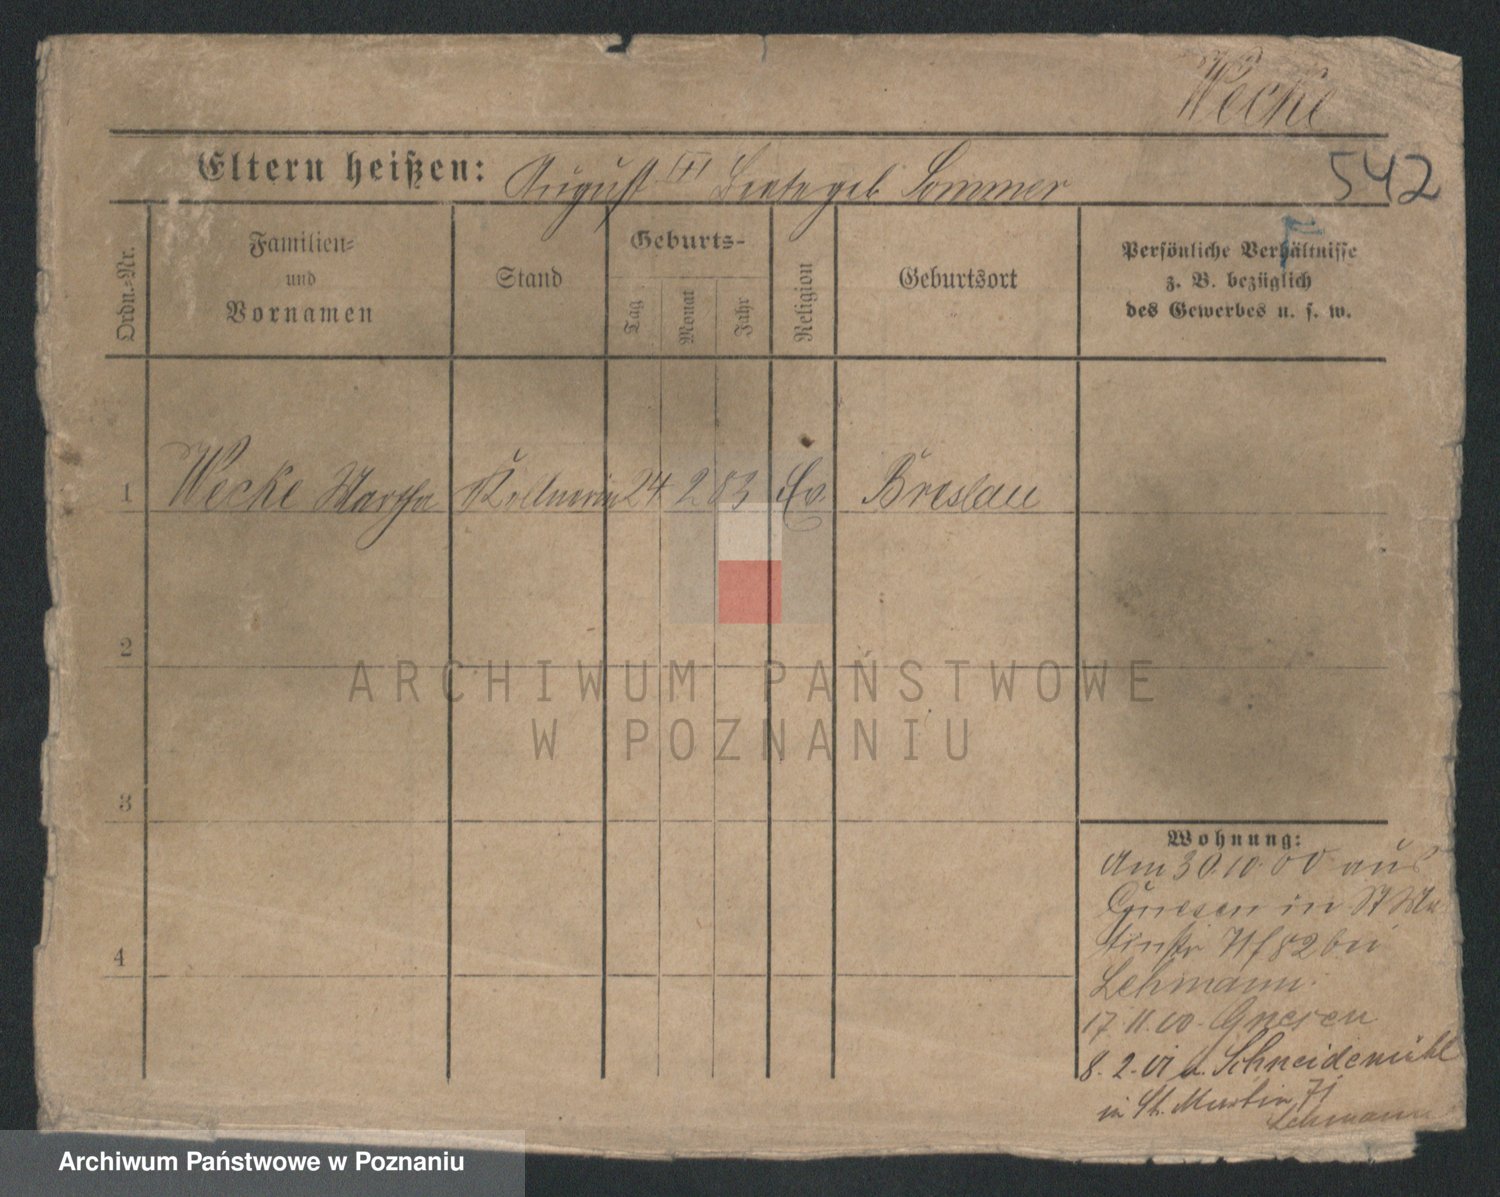 Wecke
Eltern heißen: August Beate geb Sommer
542
Ordn.-Nr.
Familien-
und
Vornamen
Stand
Geburts-
Tag
Monat
Jahr
Religion
Geburtsort
Persönliche Verhältnisse
z. B. bezüglich
des Gewerbes u. s. w.
1 Wecke Martha Kellnerin 24 2 83 Ev. Breslau
2
ARCHIWUM PAŃSTWOWE
W POZNANIU
3
4
Wohnung:
Am 30.10.00 aus
Gnesen in St Ma
tinstr 71 bei
Lehmann.
17.11.00. Gnesen
8.2.01 v. Schneidemühl
in St. Martin 71
Lehmann
Archiwum Państwowe w Poznaniu